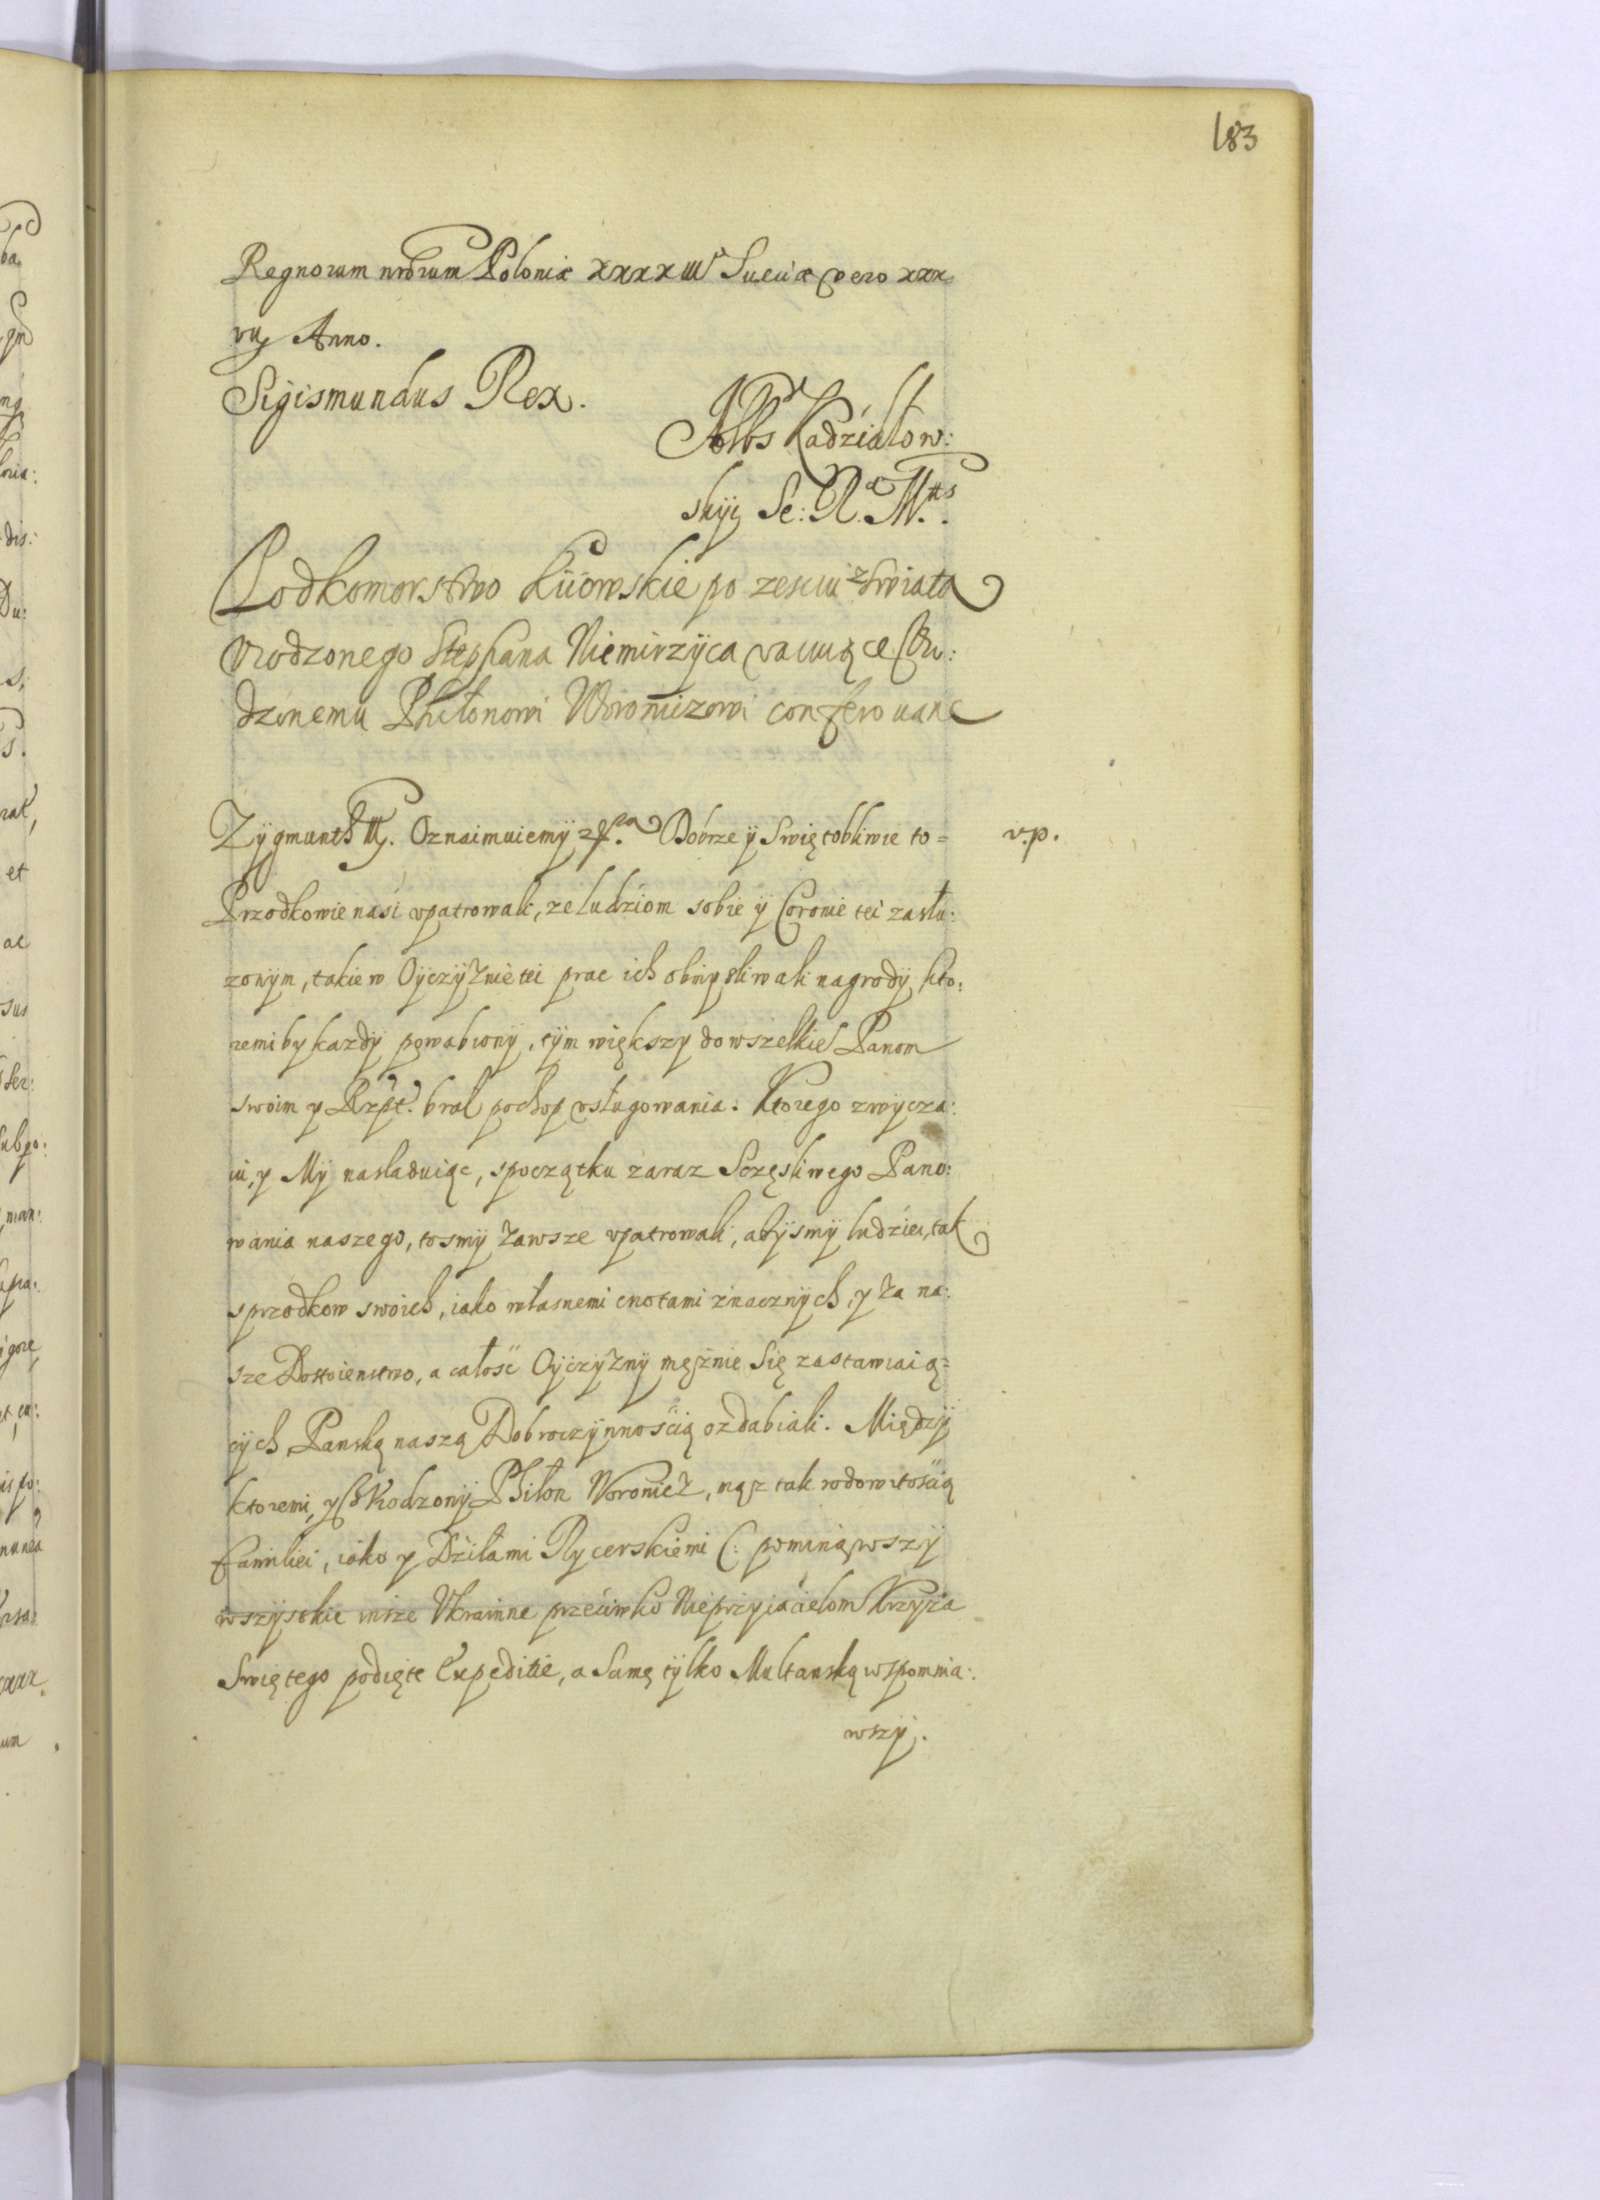 183
Regnorum nrōrum Poloniæ xxxxiii Sueciæ vero xxx
vij Anno.
Sigismundus Rex.
Albs Kadziałow:
skyi Se: R. Mtis.
Podkomorstwo Kiiowskie po ześciu z świata
Vrodzonego Stephana Niemirzÿca vacuiące Vro:
dzonemu Philonowi Woroniczowi conferouane
Zÿgmunth III. Oznaimuiemÿ Dobrze ÿ Swiętobliwie to=
v.p.
Przodkowie nasi vpatrowali, ze ludziom sobie ÿ Coronie tei zasłu:
zonym, takie w Oÿczÿznie tei prac ich obmyśliwali nagrodÿ, kto:
remi by kazdÿ powabionÿ, tÿm większy do wszelkie Panom
swoim y Rzpt. brał pochop vsługowania. Ktorego zwycza:
iu, y Mÿ nasladuiąc, spoczątku zaraz Sczęsliwego Pano:
wania naszego, tosmÿ zawsze vpatrowali, abÿsmÿ ludziei, tak
sprzodkow swoich, iako własnemi cnotami znacznÿch, y za na:
sze Dostoienstwo, a całość Oÿczÿznÿ męznie Się zastawiaią=
cÿch, Panską naszą Dobroczÿnnością ozdabiali. Międzÿ
ktoremi, y Vrodzonÿ Philon Woronicz, mąz tak rodowitością
Familiei, iako y Dziłami Rycerskiemi (: pominąwszÿ
wszÿstkie insze Vkrainne przeciwko Nieprzyiacielom Krzyza
Swiętego podięte Expeditie, a Samę tÿlko Multanską wspomnia:
wszÿ.